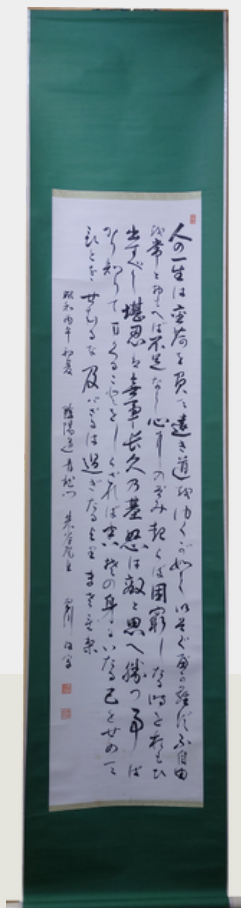 人の一生は重荷を負て遠き道をゆくが如しいそぐべからず不自由
を常とおもへば不足なし心にのぞみ起らば困窮したる時をおもひ
出すべし堪忍は無事長久乃基怒は敵と思へ勝つ事ば
かり知りてまくることをしらざれば害其の身にいたる己をせめて
ひとをせむるな及バざるは過ぎたるよりまされり
昭和丙午初夏